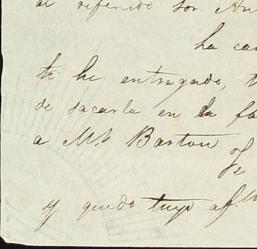 al referido Sor An
ha ca
te he entregado, t
de sacarla en la fa
a Mr. Barton
y quedo tuyo afmo